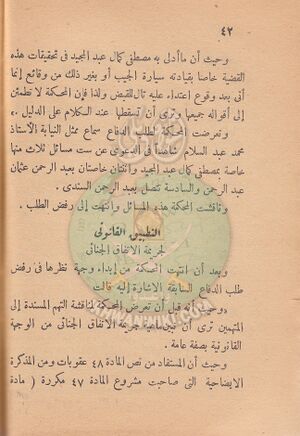 ٤٢
وحيث أن ما أدلى به مصطفى كمال عبد المجيد فى تحقيقات هذه
القضية خاصا بقيادته سيارة الجيب أو بغير ذلك من وقائع إنما
أتى بعد وقوع اعتداء عليه تال للقبض ولذا فإن المحكمة لا تطمئن
إلى أقواله جميعها وترى أن تسقطها عند الكلام على الدليل ..
وتعرضت المحكمة لطلب الدفاع سماع ممثل النيابة الأستاذ
محمد عبد السلام شاهداً فى الدعوى عن ست مسائل ثلاث منها
خاصة بمصطفى كمال عبد المجيد واثنتان خاصتان بعبد الرحمن عثمان
عبد الرحمن والسادسة تتصل بعبد الرحمن السندى .
وناقشت المحكمة هذه المسائل وانتهت إلى رفض الطلب .
التطبيق القانونى
لجريمة الاتفاق الجنائى
وبعد أن انتهت المحكمة من إبداء وجهة نظرها فى رفض
طلب الدفاع السابقة الاشارة إليه قالت
وحيث أنه قبل أن تعرض المحكمة لمناقشة التهم المسندة إلى
المتهمين ترى أن تبين ماهية جريمة الاتفاق الجنائى من الوجهة
القانونية بصفة عامة .
وحيث أن المستفاد من نص المادة ٤٨ عقوبات ومن المذكرة
الايضاحية التى صاحبت مشروع المادة ٤٧ مكررة ( مادة